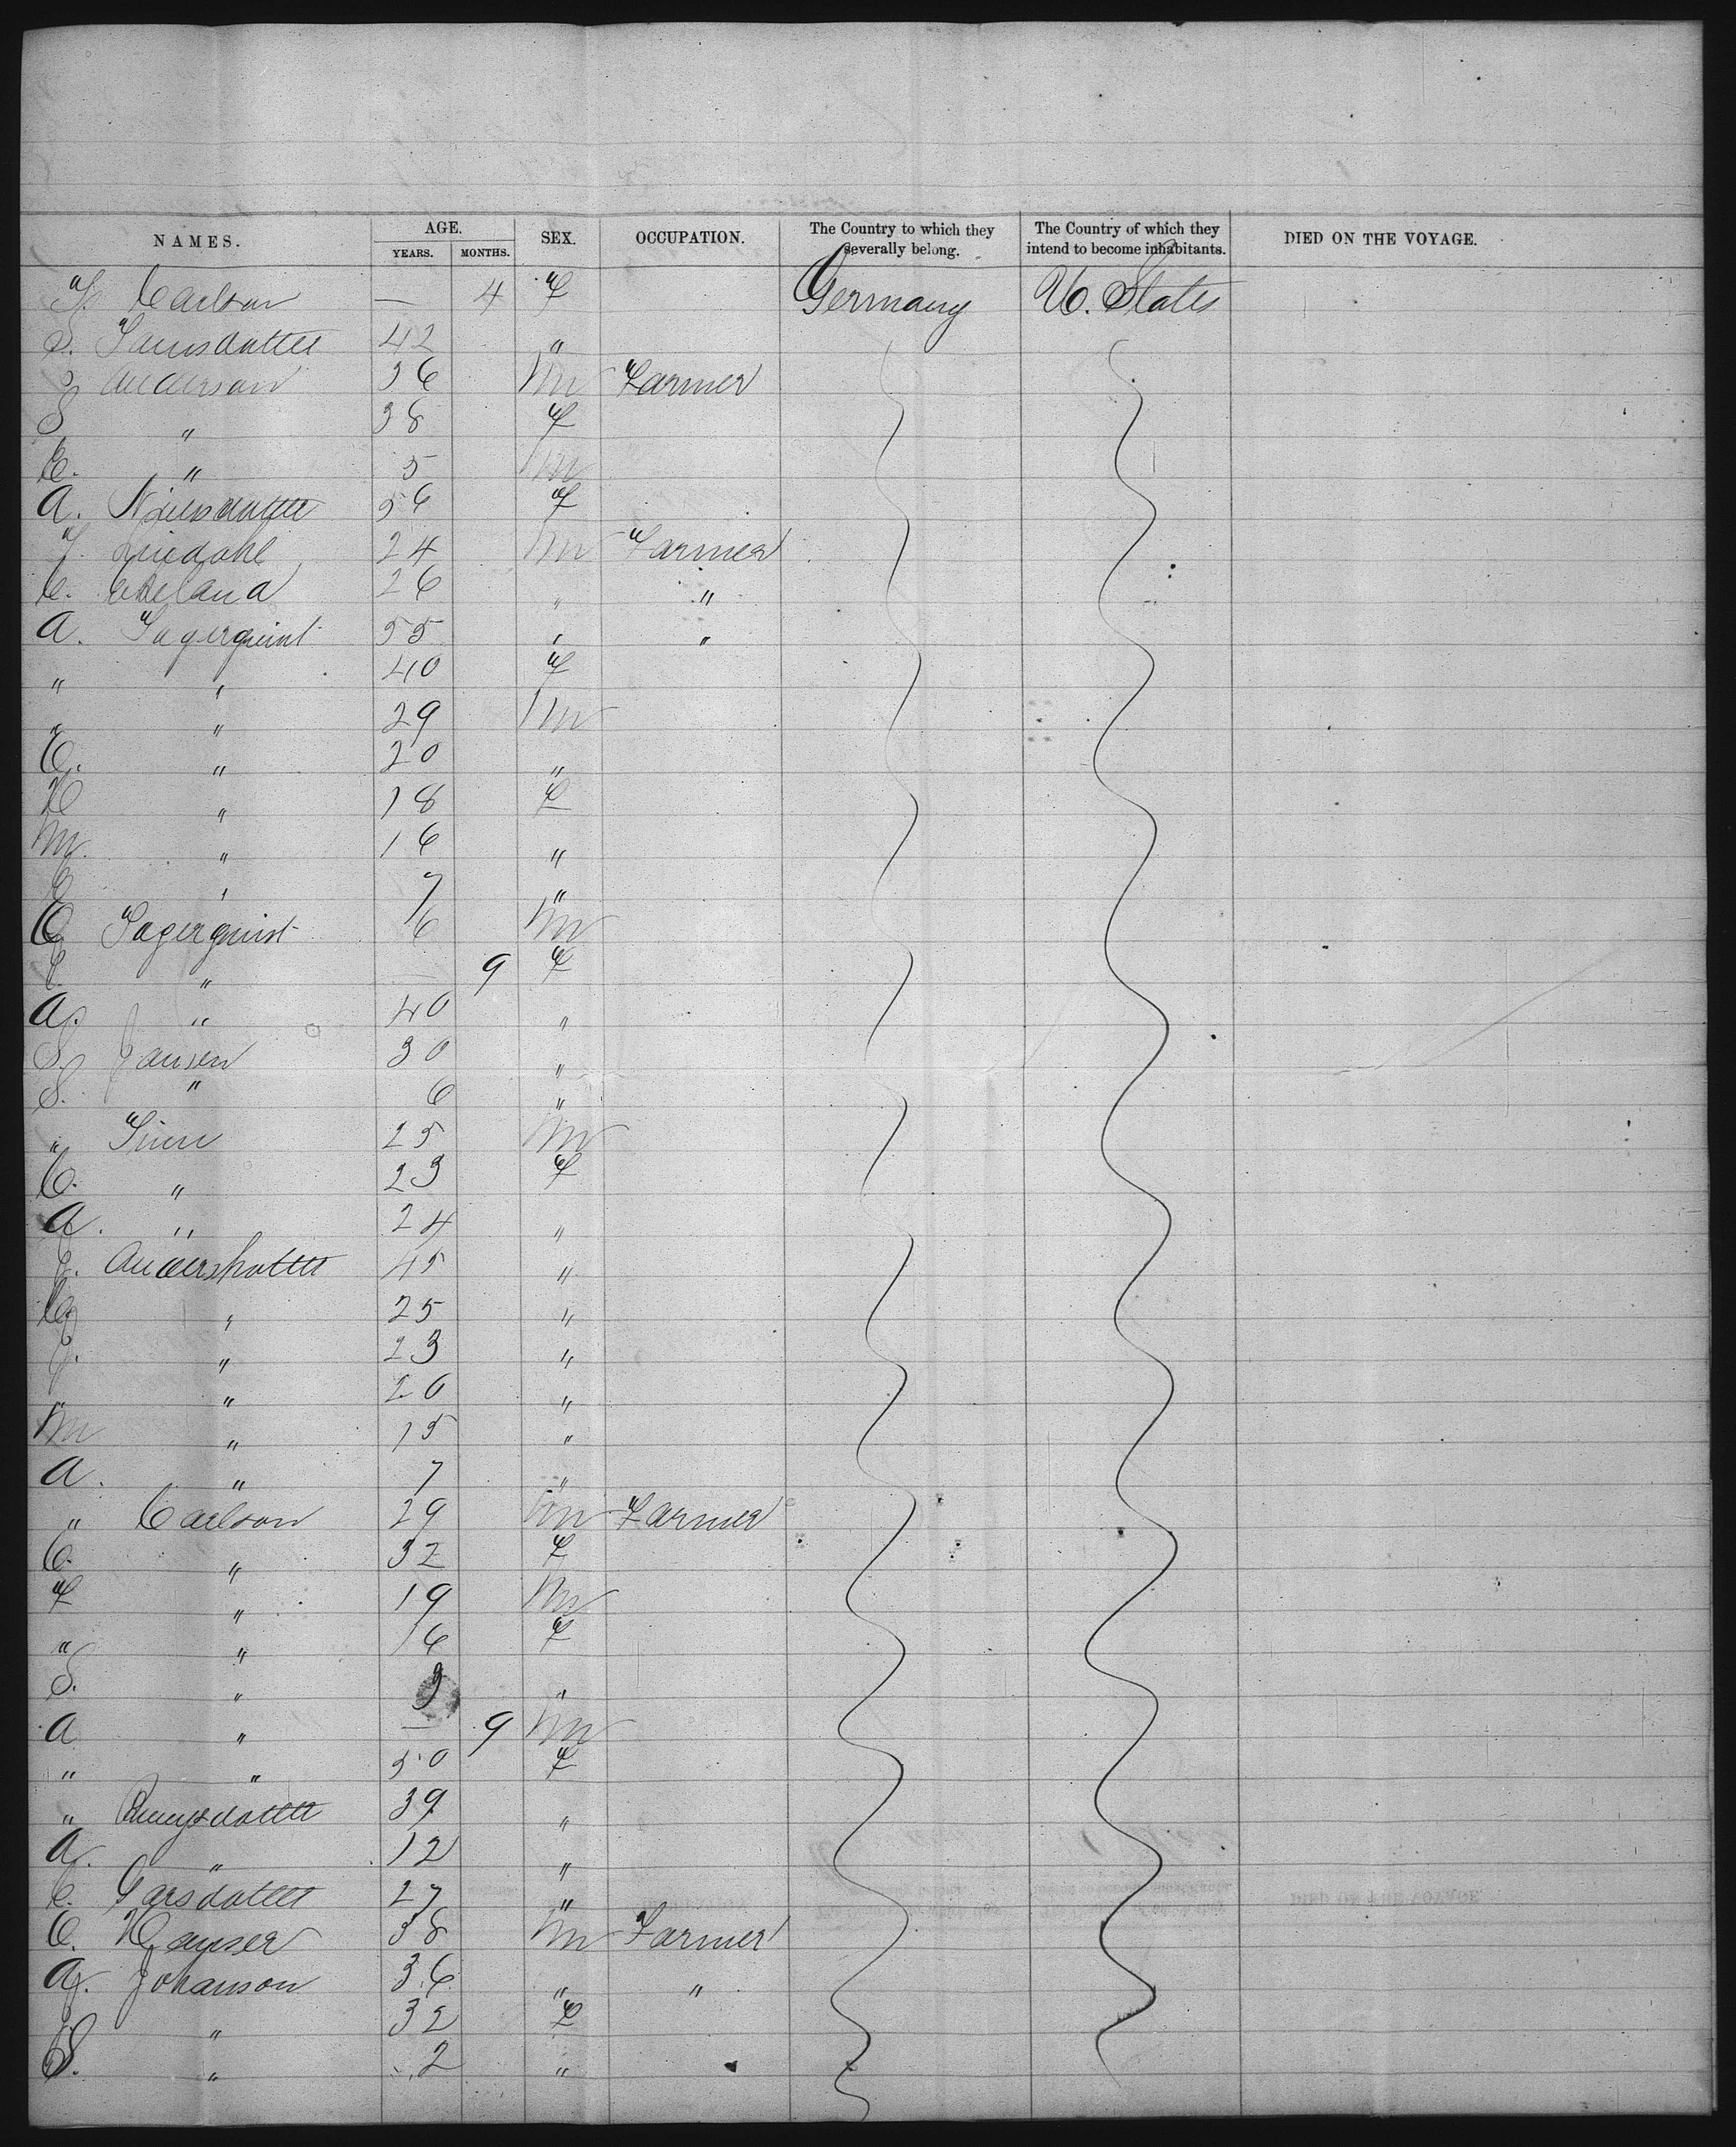 NAMES. AGE. SEX. OCCUPATION. The Country to which they severally belong. The Country of which they intend to become inhabitants. DIED ON THE VOYAGE.
YEARS. MONTHS.
Carlson — 4 F Germany U. States
S. 42 "
Anderson 36 M Farmer
S " 38 F
C. " 5 M
A. Nilsdotter 56 F
J. Lindahl 24 M Farmer
C. 26 " "
A. Lagerquist 55 " "
" " 40 F
" " 29 M
C. " 20 "
H " 18 F
M. " 16 "
" 7 "
C. Lagerquist 6 M
" — 9 F
A. " 40 "
S. Jansen 30 "
S. " 6 "
" 25 M
C. " 23 F
A. " 24 "
Andersdotter 45 "
" 25 "
" 23 "
" " 20 "
M " 15 "
A. " 7 "
" Carlson 29 M Farmer
C. " 32 F
F " 19 M
" " 16 F
S. " 9 "
A " — 9 M
" " 50 F
" 39 "
A. " 12 "
C. Larsdotter 27 "
C. 38 M Farmer
A. Johanson 36 " "
" 32 F
S. " 2 "